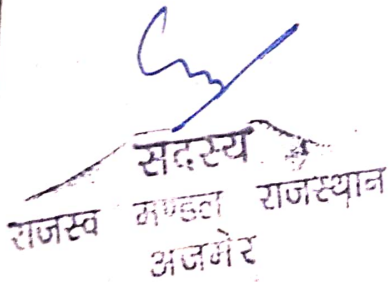 सदस्य
राजस्व मण्डल राजस्थान
अजमेर